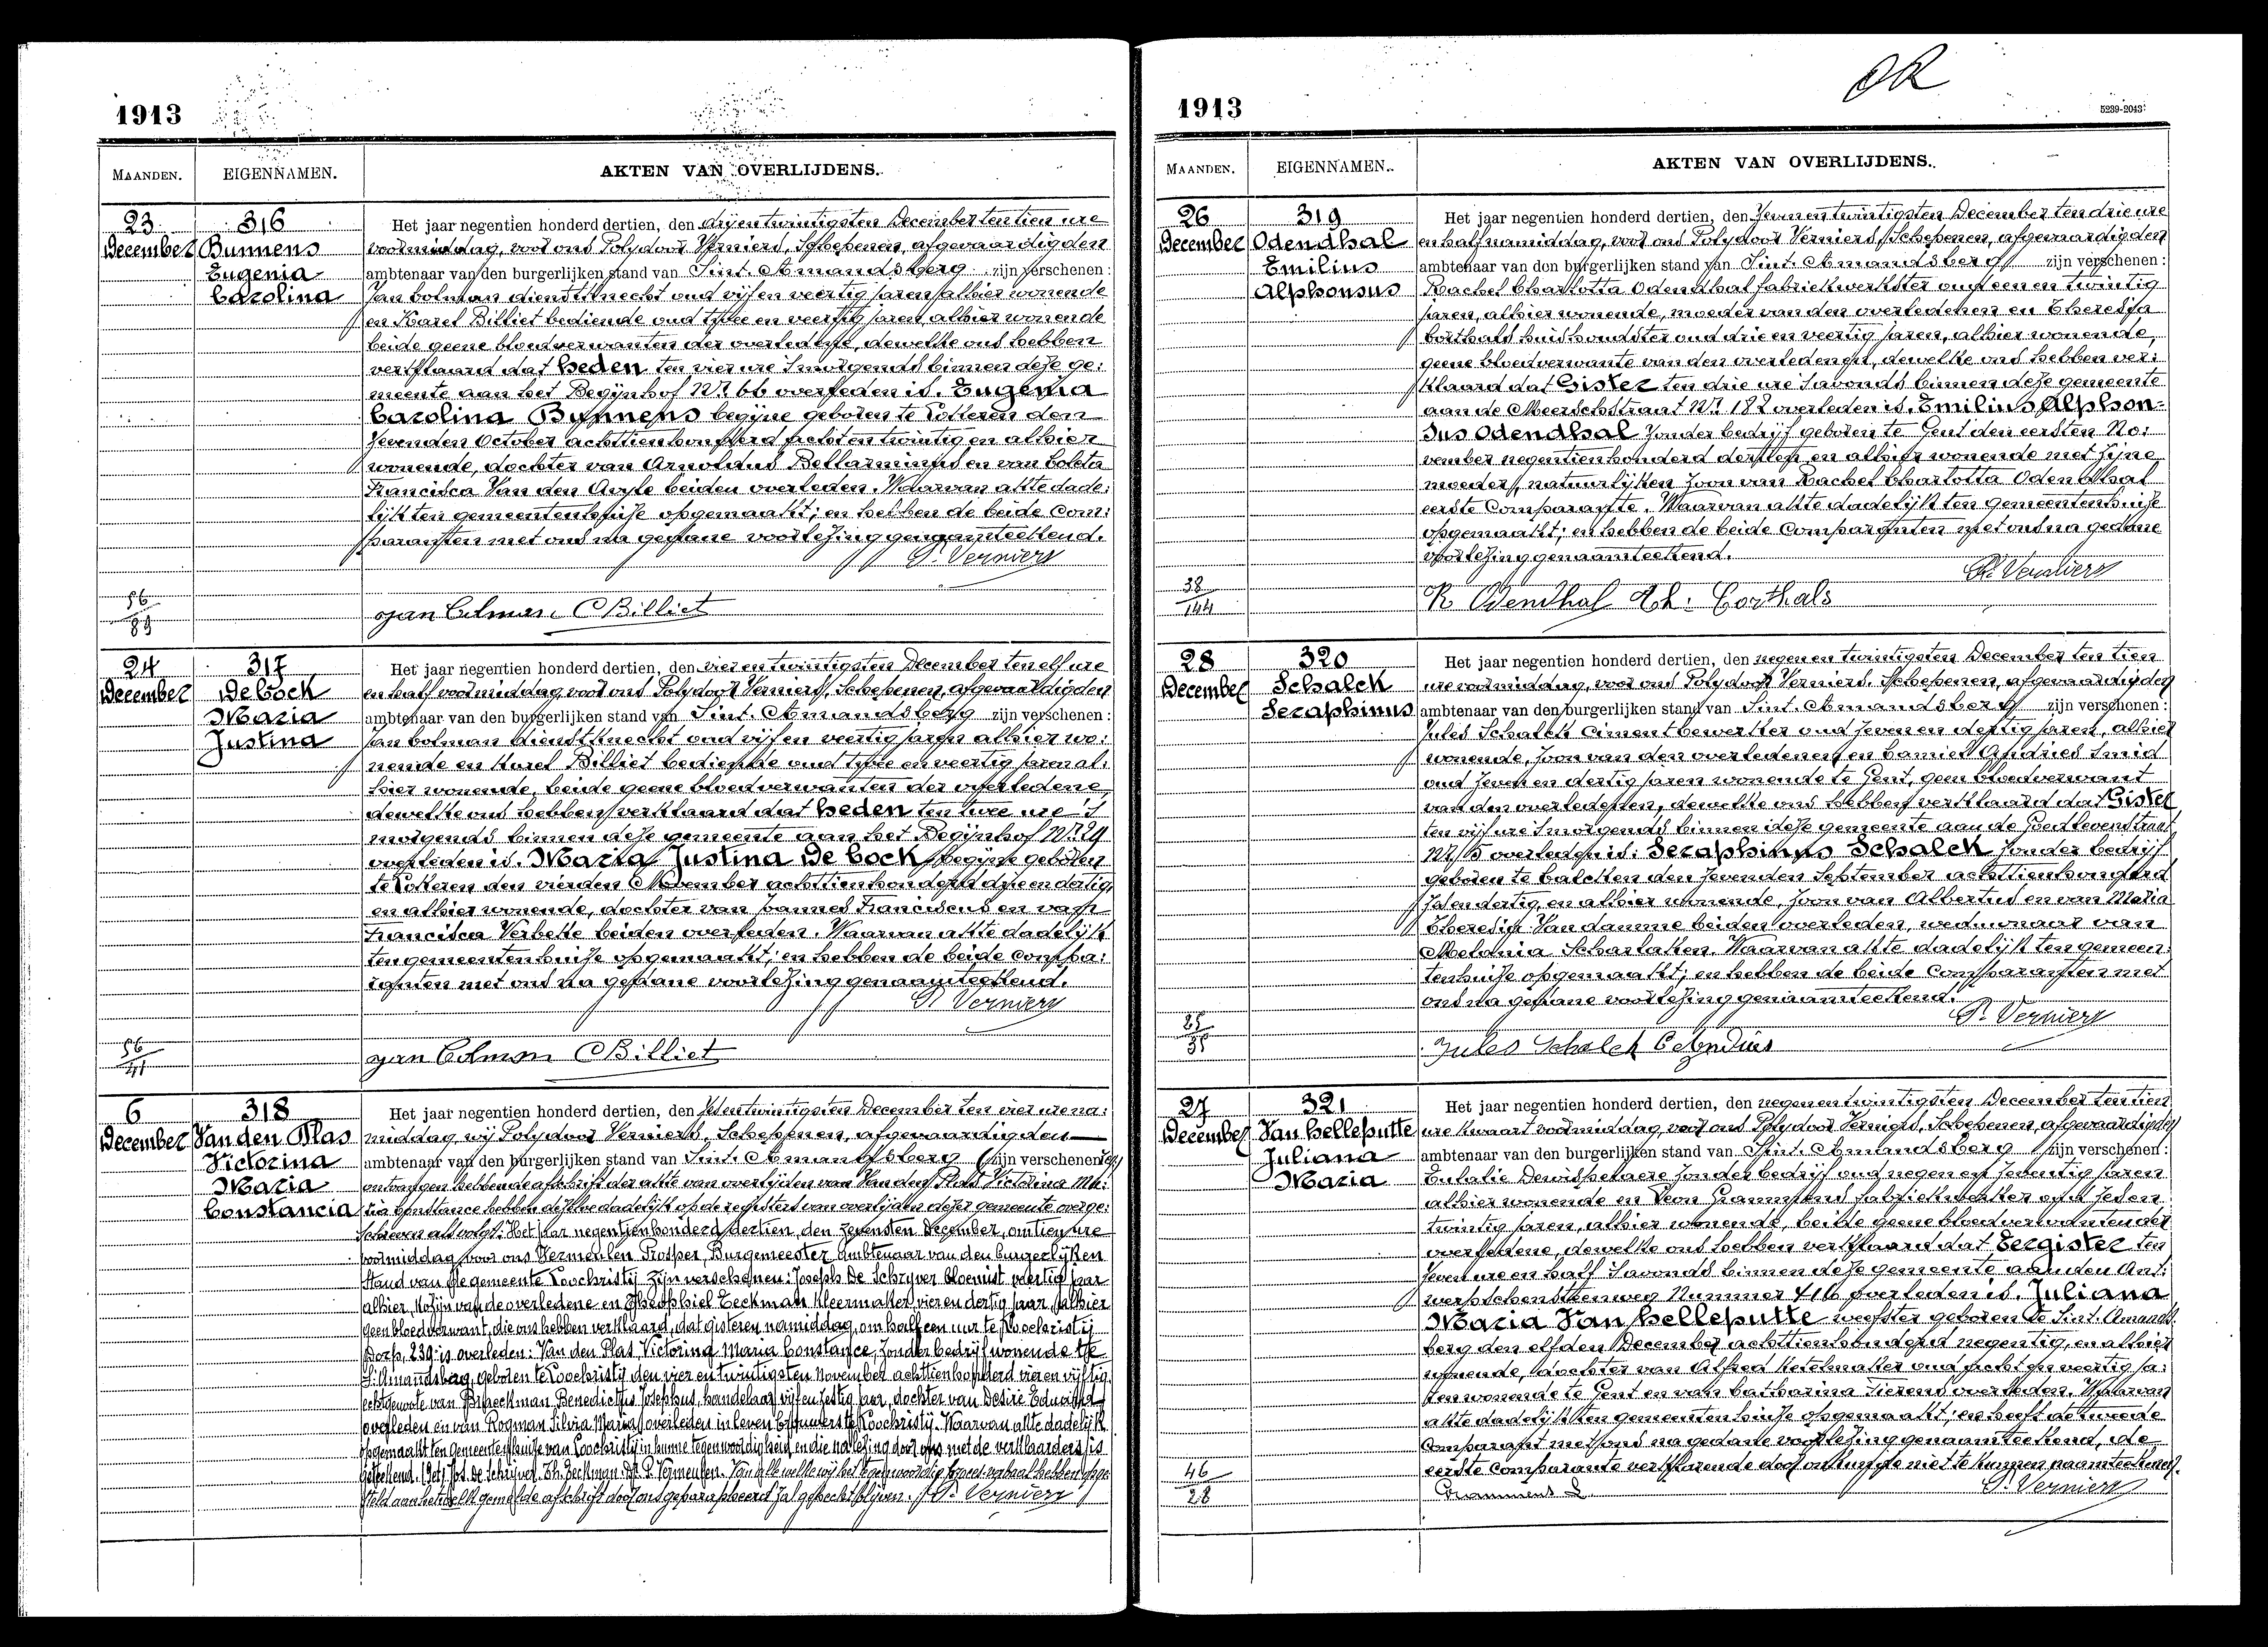 1913
MAANDEN. EIGENNAMEN. AKTEN VAN OVERLIJDENS.
23 December
316
Bunnens
Eugenia
Carolina
Het jaar negentien honderd dertien, den drijentwintigsten December ten tien ure
voormiddag, voor ons Polydoor Verniers, Schepenen, afgevaardigden
ambtenaar van den burgerlijken stand van Sint. Amandsberg zijn verschenen:
Jan Colman dienstknecht oud vijf en veertig jaren, alhier wonende
en Karel Billiet bediende oud twee en veertig jaren, alhier wonende
beide geene bloedverwanten der overledene, dewelke ons hebben
verklaard dat heden ten vier ure 's morgends binnen deze ge:
meente aan het Begijnhof Nr. 66 overleden is. Eugenia
Carolina Bunnens begijne geboren te Lokeren den
zevenden October achttien honderd acht en twintig en alhier
wonende, dochter van Arnoldus Bellarminus en van Coleta
Francisca Van den Avyle beiden overleden. Waarvan akte dade:
lijk ten gemeentenhuise opgemaakt; en hebben de beide Com:
paranten met ons na gedane voorlezing genaamteekend.
P. Verniers
Jan Colman CBilliet
56
89
24 December
317
De Cock
Maria
Justina
Het jaar negentien honderd dertien, den vier en twintigsten December ten elf ure
en half voormiddag, voor ons Polydoor Verniers, Schepenen, afgevaardigden
ambtenaar van den burgerlijken stand van Sint. Amandsberg zijn verschenen:
Jan Colman dienstknecht oud vijf en veertig jaren alhier wo:
nende en Karel Billiet bediende oud twee en veertig jaren al:
hier wonende, beide geene bloedverwanten der overledene,
dewelke ons hebben verklaard dat heden ten twee ure 's
morgends binnen deze gemeente aan het Begijnhof Nr.
overleden is. Maria Justina De Cock, begijne geboren
te Lokeren den vierden November achttien honderd drie en dertig,
en alhier wonende, dochter van Joannes Franciscus en van
Francisca Verbeke beiden overleden. Waarvan akte dadelijk
ten gemeentenhuise opgemaakt; en hebben de beide Compa:
ranten met ons na gedane voorlezing genaamteekend.
P. Verniers
Jan Colman CBilliet
56
41
6 December
318
Van den Plas
Victorina
Maria
Constancia
Het jaar negentien honderd dertien, den zesentwintigsten December ten vier ure na:
middag, wij Polydoor Verniers, Schepenen, afgevaardigden
ambtenaar van den burgerlijken stand van Sint. Amandsberg (zijn verschenen:
ontvangen hebbende afschrift der akte van overlijden van Van den Plas Victorina Ma:
ria Constance hebben dezelve dadelijk op de registers van overlijden dezer gemeente overge:
schreven als volgt: Het jaar negentienhonderd dertien, den zevensten December, om tien ure
voormiddag voor ons Vermeulen Prosper, Burgemeester Ambtenaar van den Burgerlijken
Stand van de gemeente Loochristij zijn verschenen: Joseph De Schryver bloemist veertig jaar
alhier, kozijn van de overledene en Theophiel Zeekman kleermaker, vier en dertig jaar, alhier
geen bloedverwant, die ons hebben verklaard, dat gisteren namiddag, om half een uur te Loochristij
Dorp, 239 is overleden: Van den Plas Victorina Maria Constance, zonder bedrijf wonende te
St. Amandsberg, geboren te Loochristij den vier en twintigsten November achttien honderd vier en vijftig
echtgenote van Braeckman Benedictus Josephus, handelaar vijf en zestig jaar, dochter van Desiré Eduard
overleden en van Rogman Silvia Maria overleden in leven te Loochristij. Waarvan akte dadelijk
opgemaakt ten gemeentenhuise van Loochristij in hunne tegenwoordigheid en die na lezing door ons met de verklaarders is
geteekend. (Get) Jos. De Schrijver. Th. Zeekman. P. Vermeulen. Van alle welke wij het tegenwoordig proces verbaal hebben opge:
steld aan hetwelk gemelde afschrift door ons geparapheerd zal gehecht blijven. P. Verniers
1913
5239-2043
OK
MAANDEN. EIGENNAMEN. AKTEN VAN OVERLIJDENS.
26 December
319
Odendhal
Emilius
Alphonsus
Het jaar negentien honderd dertien, den zevenentwintigsten December ten drie ure
en half namiddag, voor ons Polydoor Verniers, Schepenen, afgevaardigden
ambtenaar van den burgerlijken stand van Sint. Amandsberg zijn verschenen:
Rachel Charlotta Odendhal fabriekwerkster oud een en twintig
jaren, alhier wonende, moeder van den overledenen en Theresia
Corthals huishoudster oud drie en veertig jaren, alhier wonende,
geene bloedverwante van den overledenen, dewelke ons hebben ver:
klaard dat Gister ten drie ure 's avonds binnen deze gemeente
aan de Meerschstraat Nr. 182 overleden is. Emilius Alphon-
sus Odendhal zonder bedrijf geboren te Gent den eersten No:
vember negentien honderd dertien en alhier wonende met zijne
moeder, natuurlijken zoon van Rachel Charlotta Odendhal
eerste Comparante. Waarvan akte dadelijk ten gemeentenhuise
opgemaakt; en hebben de beide Comparanten met ons na gedane
voorlezing genaamteekend.
P. Verniers
R Odendhal Th. Corthals
38
144
28 December
320
Schalck
Seraphinus
Het jaar negentien honderd dertien, den negen en twintigsten December ten tien
ure voormiddag, voor ons Polydoor Verniers, Schepenen, afgevaardigden
ambtenaar van den burgerlijken stand van Sint. Amandsberg zijn verschenen:
Jules Schalck Cimentbewerker oud zeven en dertig jaren, alhier
wonende, zoon van den overledenen en Camiel Andries smid
oud zeven en dertig jaren wonende te Gent, geen bloedverwant
van den overledenen, dewelke ons hebben verklaard dat Gister
ten vijf ure 's morgends binnen deze gemeente aan de Goedlevenstraat
Nr. 15 overleden is: Seraphinus Schalck zonder bedrijf
geboren te Calcken den zevenden September achttien honderd
zes en dertig, en alhier wonende, zoon van Albertus en van Maria
Theresia Van damme beiden overleden, weduwnaar van
Melania Scharlaken. Waarvan akte dadelijk ten gemeen:
tenhuise opgemaakt; en hebben de beide Comparanten met
ons na gedane voorlezing genaamteekend.
P. Verniers
Jules Schalck C Andries
85
35
27 December
321
Van helleputte
Juliana
Maria
Het jaar negentien honderd dertien, den negen en twintigsten December ten tien
ure kwaart voormiddag, voor ons Polydoor Verniers, Schepenen, afgevaardigden
ambtenaar van den burgerlijken stand van Sint. Amandsberg zijn verschenen:
Eulalie Dewispelaere zonder bedrijf oud negen en zeventig jaren
alhier wonende en Leon Grammens fabriekwerker oud zeden
twintig jaren, alhier wonende, beide geene bloedverwanten der
overledene, dewelke ons hebben verklaard dat Eergister ten
zeven ure en half 's avonds binnen deze gemeente aan den Ant:
werpschensteenweg Nummer 416 overleden is. Juliana
Maria Van helleputte weefster geboren te Sint. Amands
berg den elfden December achttien honderd negentig, en alhier
wonende, dochter van Alfred ketelmaker oud acht en veertig ja:
ren wonende te Gent en van Catharina Tierens overleden. Waarvan
akte dadelijk ten gemeentenhuise opgemaakt; en heeft de tweede
Comparant met ons na gedane voorlezing genaamteekend, de
eerste Comparante verklarende door onkunde niet te kunnen naamteekenen.
Grammens L P. Verniers
46
28